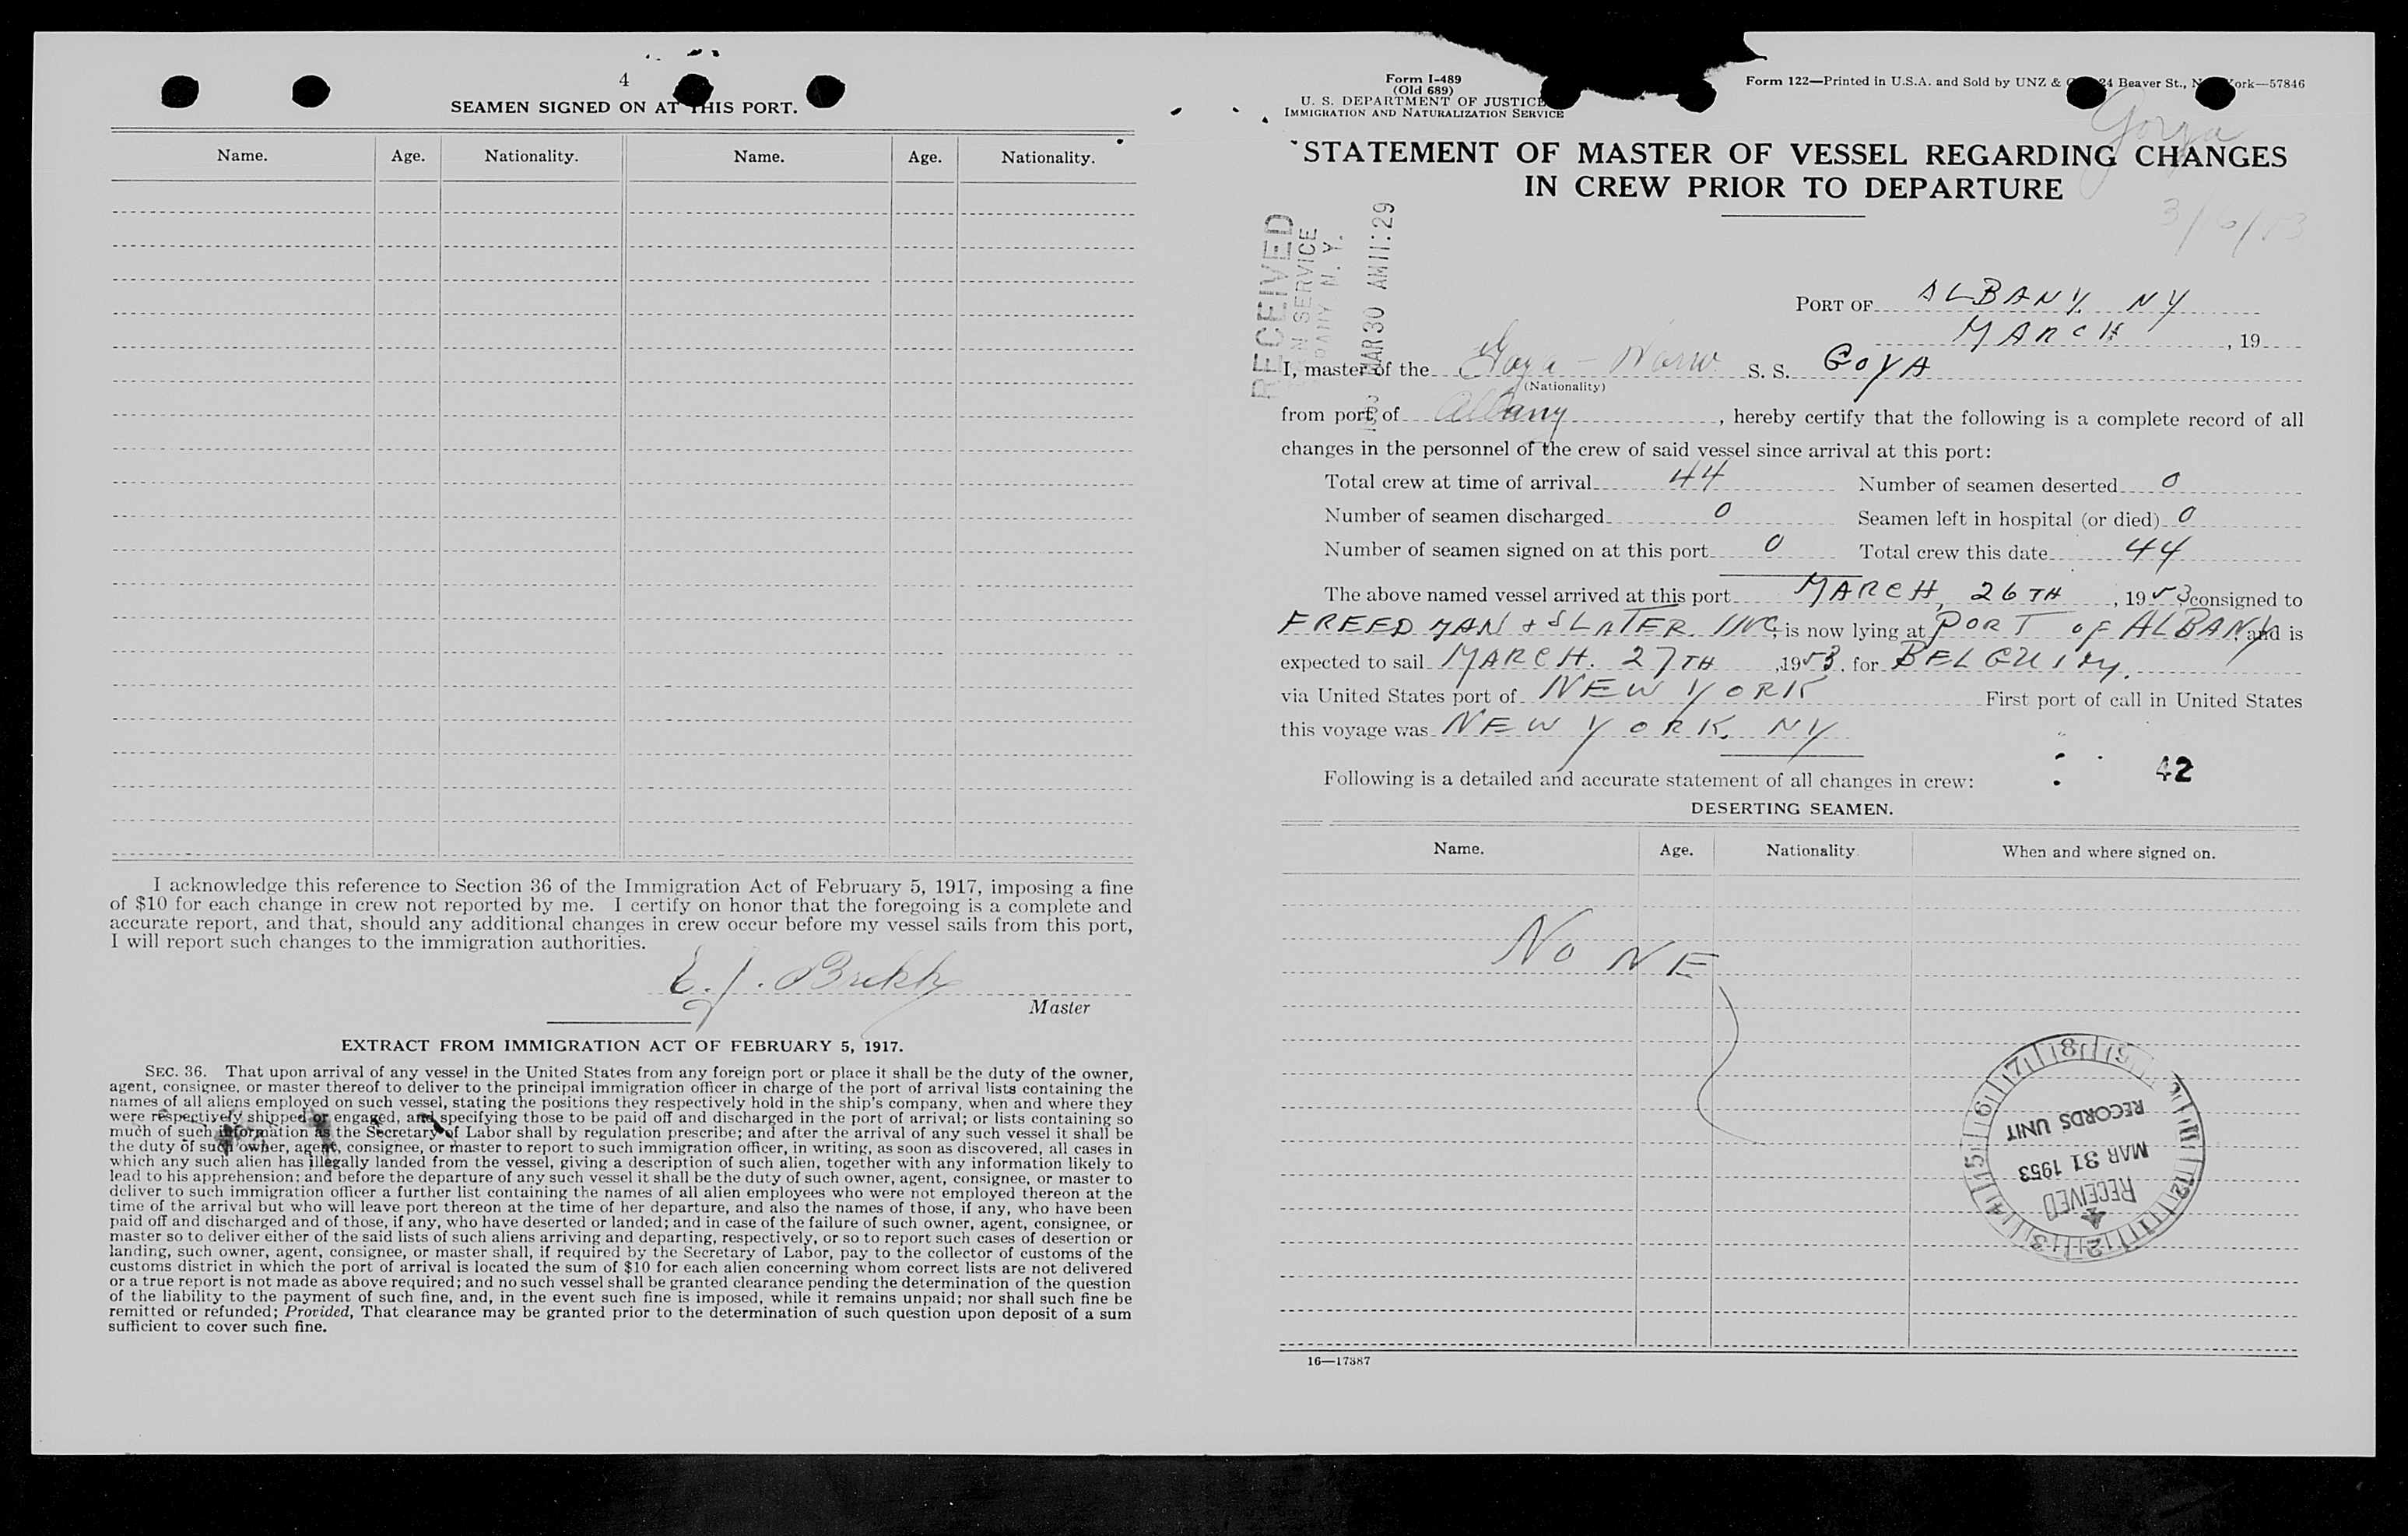 4
SEAMEN SIGNED ON AT THIS PORT.
Name. Age. Nationality. Name. Age. Nationality.
I acknowledge this reference to Section 36 of the Immigration Act of February 5, 1917, imposing a fine
of $10 for each change in crew not reported by me. I certify on honor that the foregoing is a complete and
accurate report, and that, should any additional changes in crew occur before my vessel sails from this port,
I will report such changes to the immigration authorities.
E. J.
Master
EXTRACT FROM IMMIGRATION ACT OF FEBRUARY 5, 1917.
SEC. 36. That upon arrival of any vessel in the United States from any foreign port or place it shall be the duty of the owner,
agent, consignee, or master thereof to deliver to the principal immigration officer in charge of the port of arrival lists containing the
names of all aliens employed on such vessel, stating the positions they respectively hold in the ship's company, when and where they
were respectively shipped or engaged, and specifying those to be paid off and discharged in the port of arrival; or lists containing so
much of such information as the Secretary of Labor shall by regulation prescribe; and after the arrival of any such vessel it shall be
the duty of such owner, agent, consignee, or master to report to such immigration officer, in writing, as soon as discovered, all cases in
which any such alien has illegally landed from the vessel, giving a description of such alien, together with any information likely to
lead to his apprehension; and before the departure of any such vessel it shall be the duty of such owner, agent, consignee, or master to
deliver to such immigration officer a further list containing the names of all alien employees who were not employed thereon at the
time of the arrival but who will leave port thereon at the time of her departure, and also the names of those, if any, who have been
paid off and discharged and of those, if any, who have deserted or landed; and in case of the failure of such owner, agent, consignee, or
master so to deliver either of the said lists of such aliens arriving and departing, respectively, or so to report such cases of desertion or
landing, such owner, agent, consignee, or master shall, if required by the Secretary of Labor, pay to the collector of customs of the
customs district in which the port of arrival is located the sum of $10 for each alien concerning whom correct lists are not delivered
or a true report is not made as above required; and no such vessel shall be granted clearance pending the determination of the question
of the liability to the payment of such fine, and, in the event such fine is imposed, while it remains unpaid; nor shall such fine be
remitted or refunded; Provided, That clearance may be granted prior to the determination of such question upon deposit of a sum
sufficient to cover such fine.
Form I-489
(Old 689)
U. S. DEPARTMENT OF JUSTICE
IMMIGRATION AND NATURALIZATION SERVICE
Form 122—Printed in U.S.A. and Sold by UNZ & 24 Beaver St., York—57846
STATEMENT OF MASTER OF VESSEL REGARDING CHANGES
IN CREW PRIOR TO DEPARTURE
RECEIVED
SERVICE
N. Y.
MAR 30 AM 11:29
PORT OF ALBANY, NY
MARCH, 19
I, master of the Goya - Norw. S. S. GOYA
(Nationality)
from port of Albany, hereby certify that the following is a complete record of all
changes in the personnel of the crew of said vessel since arrival at this port:
Total crew at time of arrival 44 Number of seamen deserted 0
Number of seamen discharged 0 Seamen left in hospital (or died) 0
Number of seamen signed on at this port 0 Total crew this date 44
The above named vessel arrived at this port MARCH, 26TH, 1953 consigned to
FREEDMAN & SLATER INC, is now lying at PORT OF ALBANY, and is
expected to sail MARCH. 27TH, 1953, for BELGUIM.
via United States port of NEW YORK First port of call in United States
this voyage was NEW YORK. NY
Following is a detailed and accurate statement of all changes in crew:
42
DESERTING SEAMEN.
Name. Age. Nationality When and where signed on.
NONE
RECORDS UNIT
MAR 31 1953
RECEIVED
16—17387